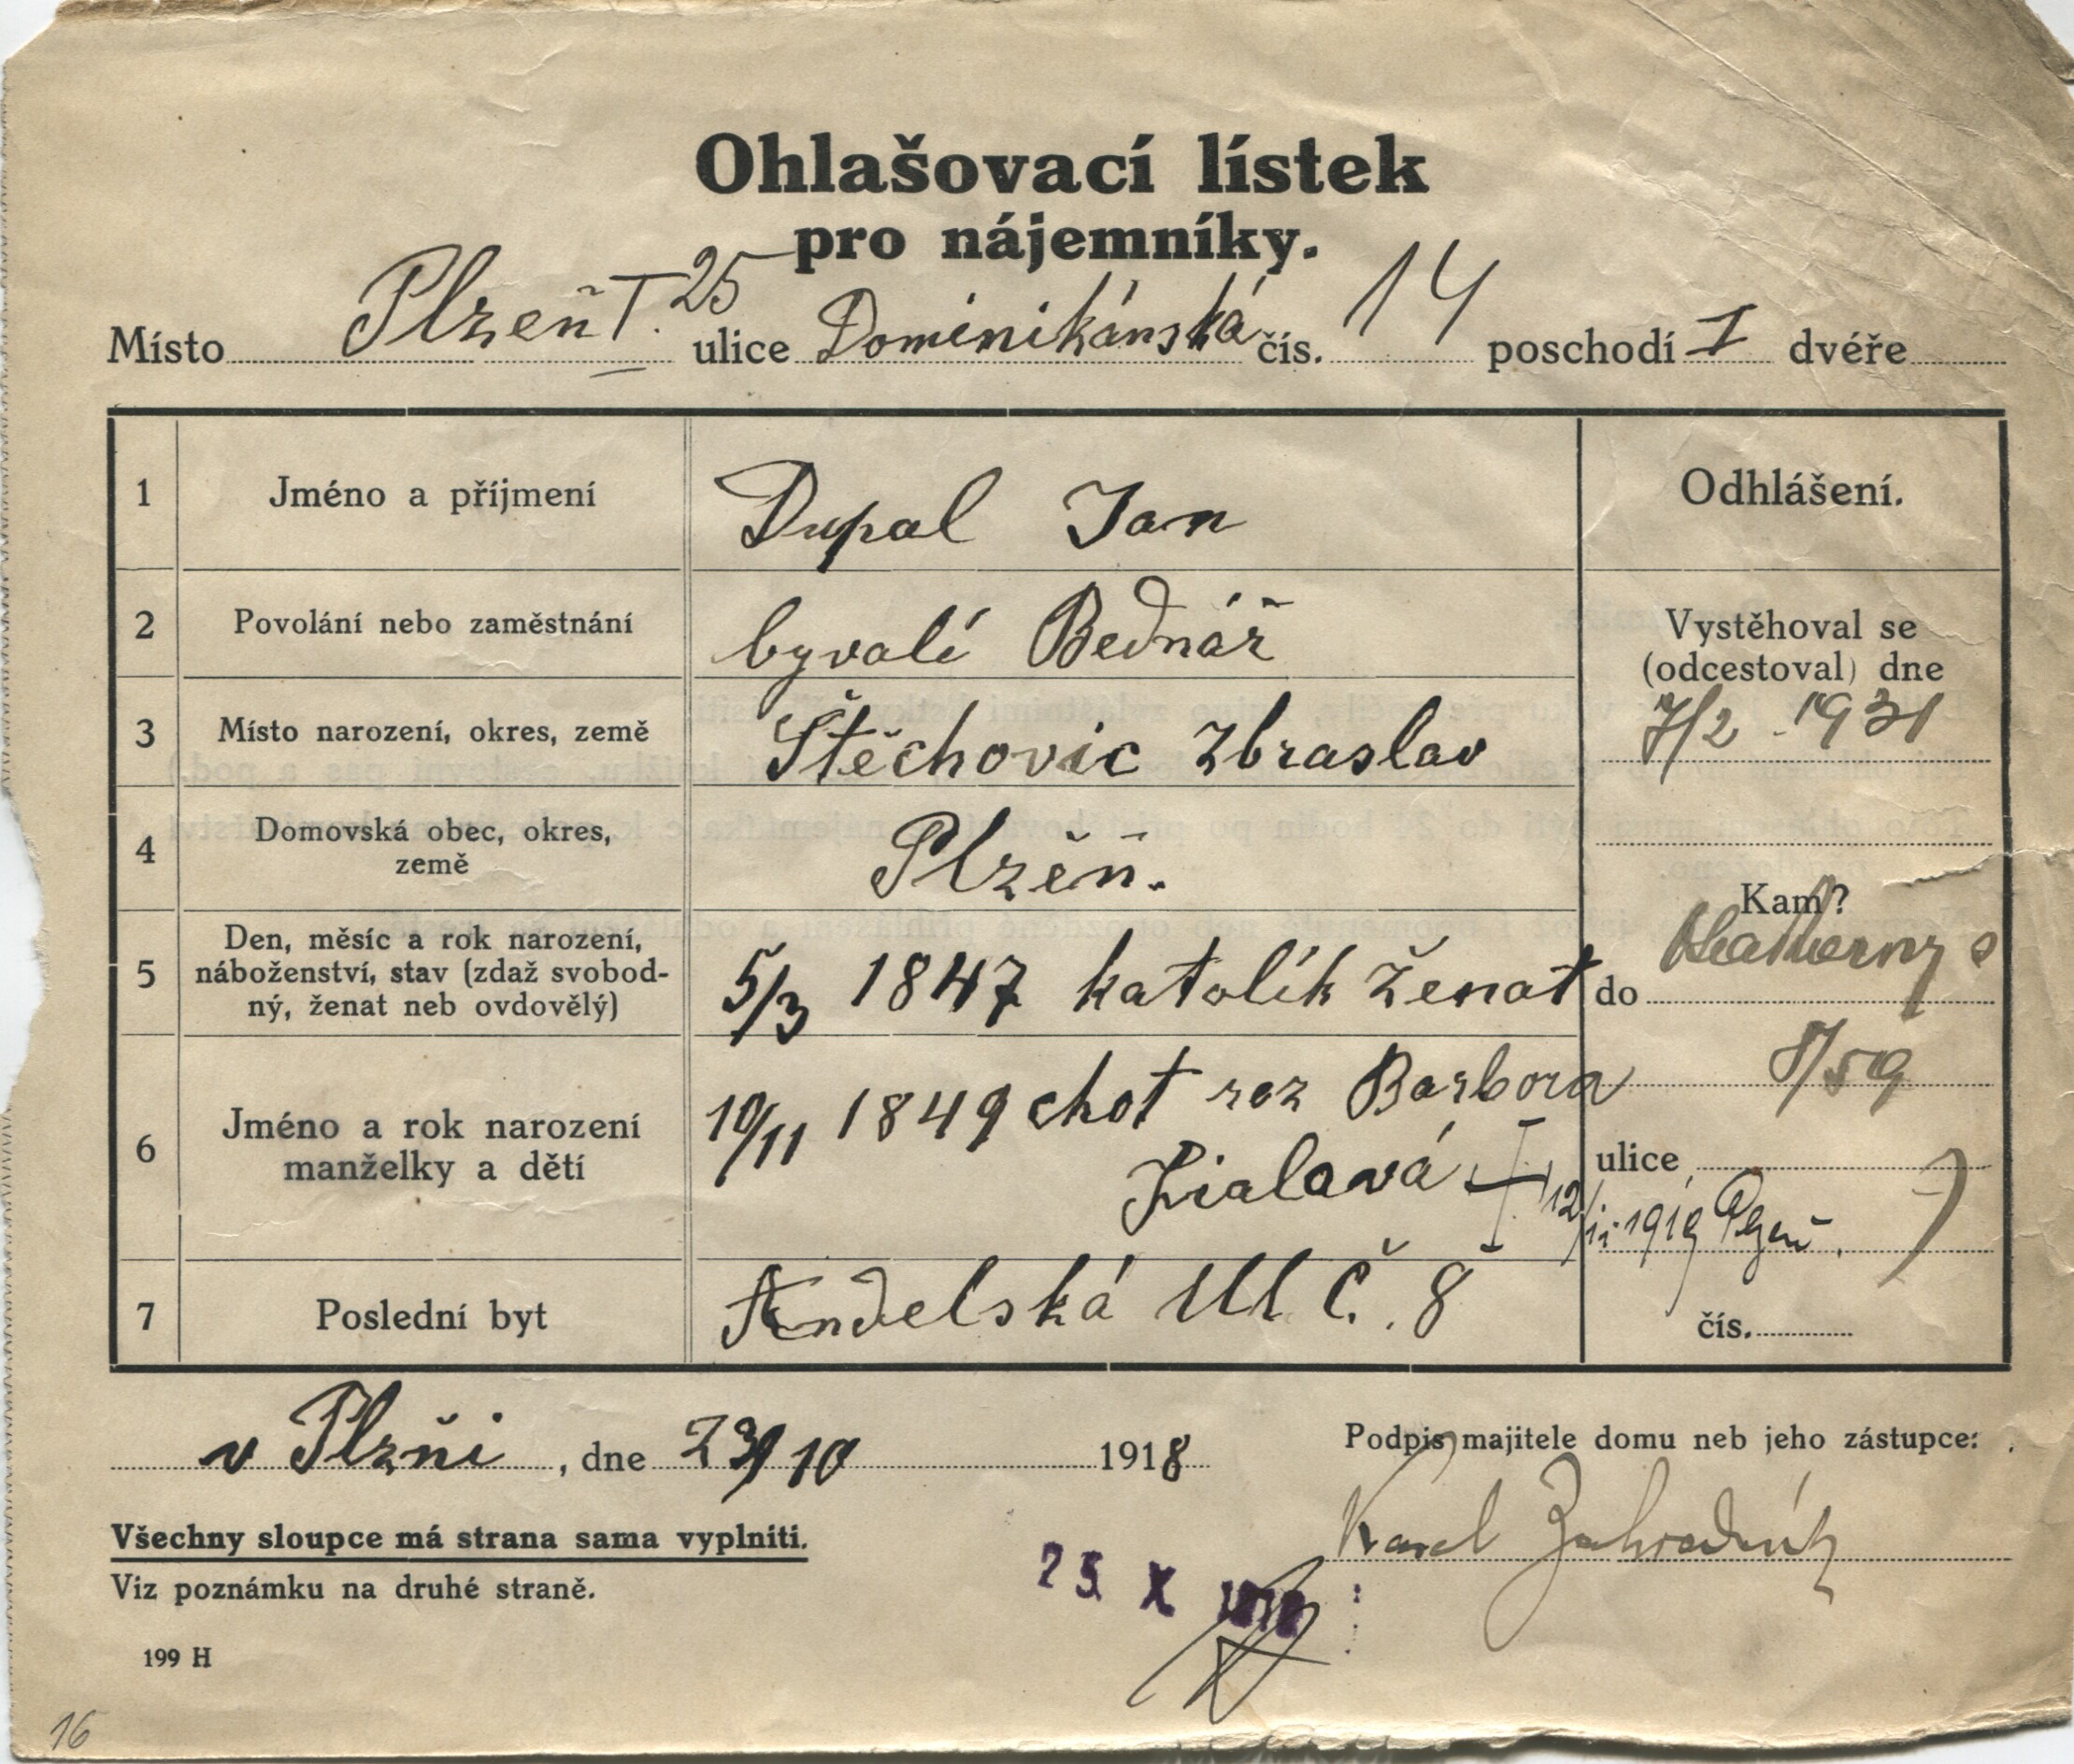 Ohlašovací lístek
pro nájemníky.
Místo Plzeň I. 25 ulice Dominikánská čís. 14 poschodí I dvéře
1 Jméno a příjmení Dupal Jan Odhlášení.
2 Povolání nebo zaměstnání byvalí Bednář Vystěhoval se
(odcestoval) dne
3 Místo narození, okres, země Štěchovic Zbraslav 7/2 1931
4 Domovská obec, okres,
země Plzěň. Kam?
5 Den, měsíc a rok narození,
náboženství, stav (zdaž svobod-
ný, ženat neb ovdovělý) 5/3 1847 katolík ženat do
6 Jméno a rok narození
manželky a dětí 10/11 1849 chot roz Barbora 8/59
ulice
12/11 1919 Plzeň.
7 Poslední byt Andelská Ul Č. 8 čís.
v Plzňi, dne 23/10 1918 Podpis majitele domu neb jeho zástupce:
Karel Zahradník
Všechny sloupce má strana sama vyplniti.
Viz poznámku na druhé straně.
25. X
199 H
16